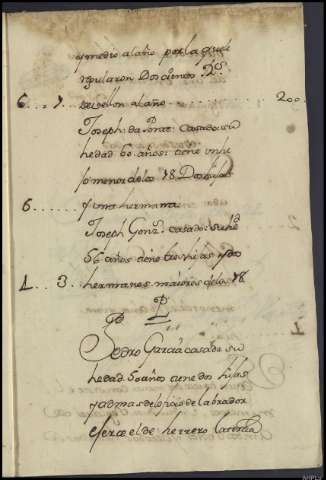 y medio al año por la que le
regularon Doscientos Rs.
6... 7. de vellon al año 200
Joseph da Ponte Casado su
hedad 60 años: tiene un hi
jo menor de los 18 Dos hijas
6 y una hermana
Joseph Gonz. casado su hd
56 años tiene tres hijas y dos
1.... 3. hermanos maiores de los 18
P
Pedro Garcia casado su
hedad 50 años tiene dos hijas
y ademas del ofizio de labrador
ejerce el de herrero